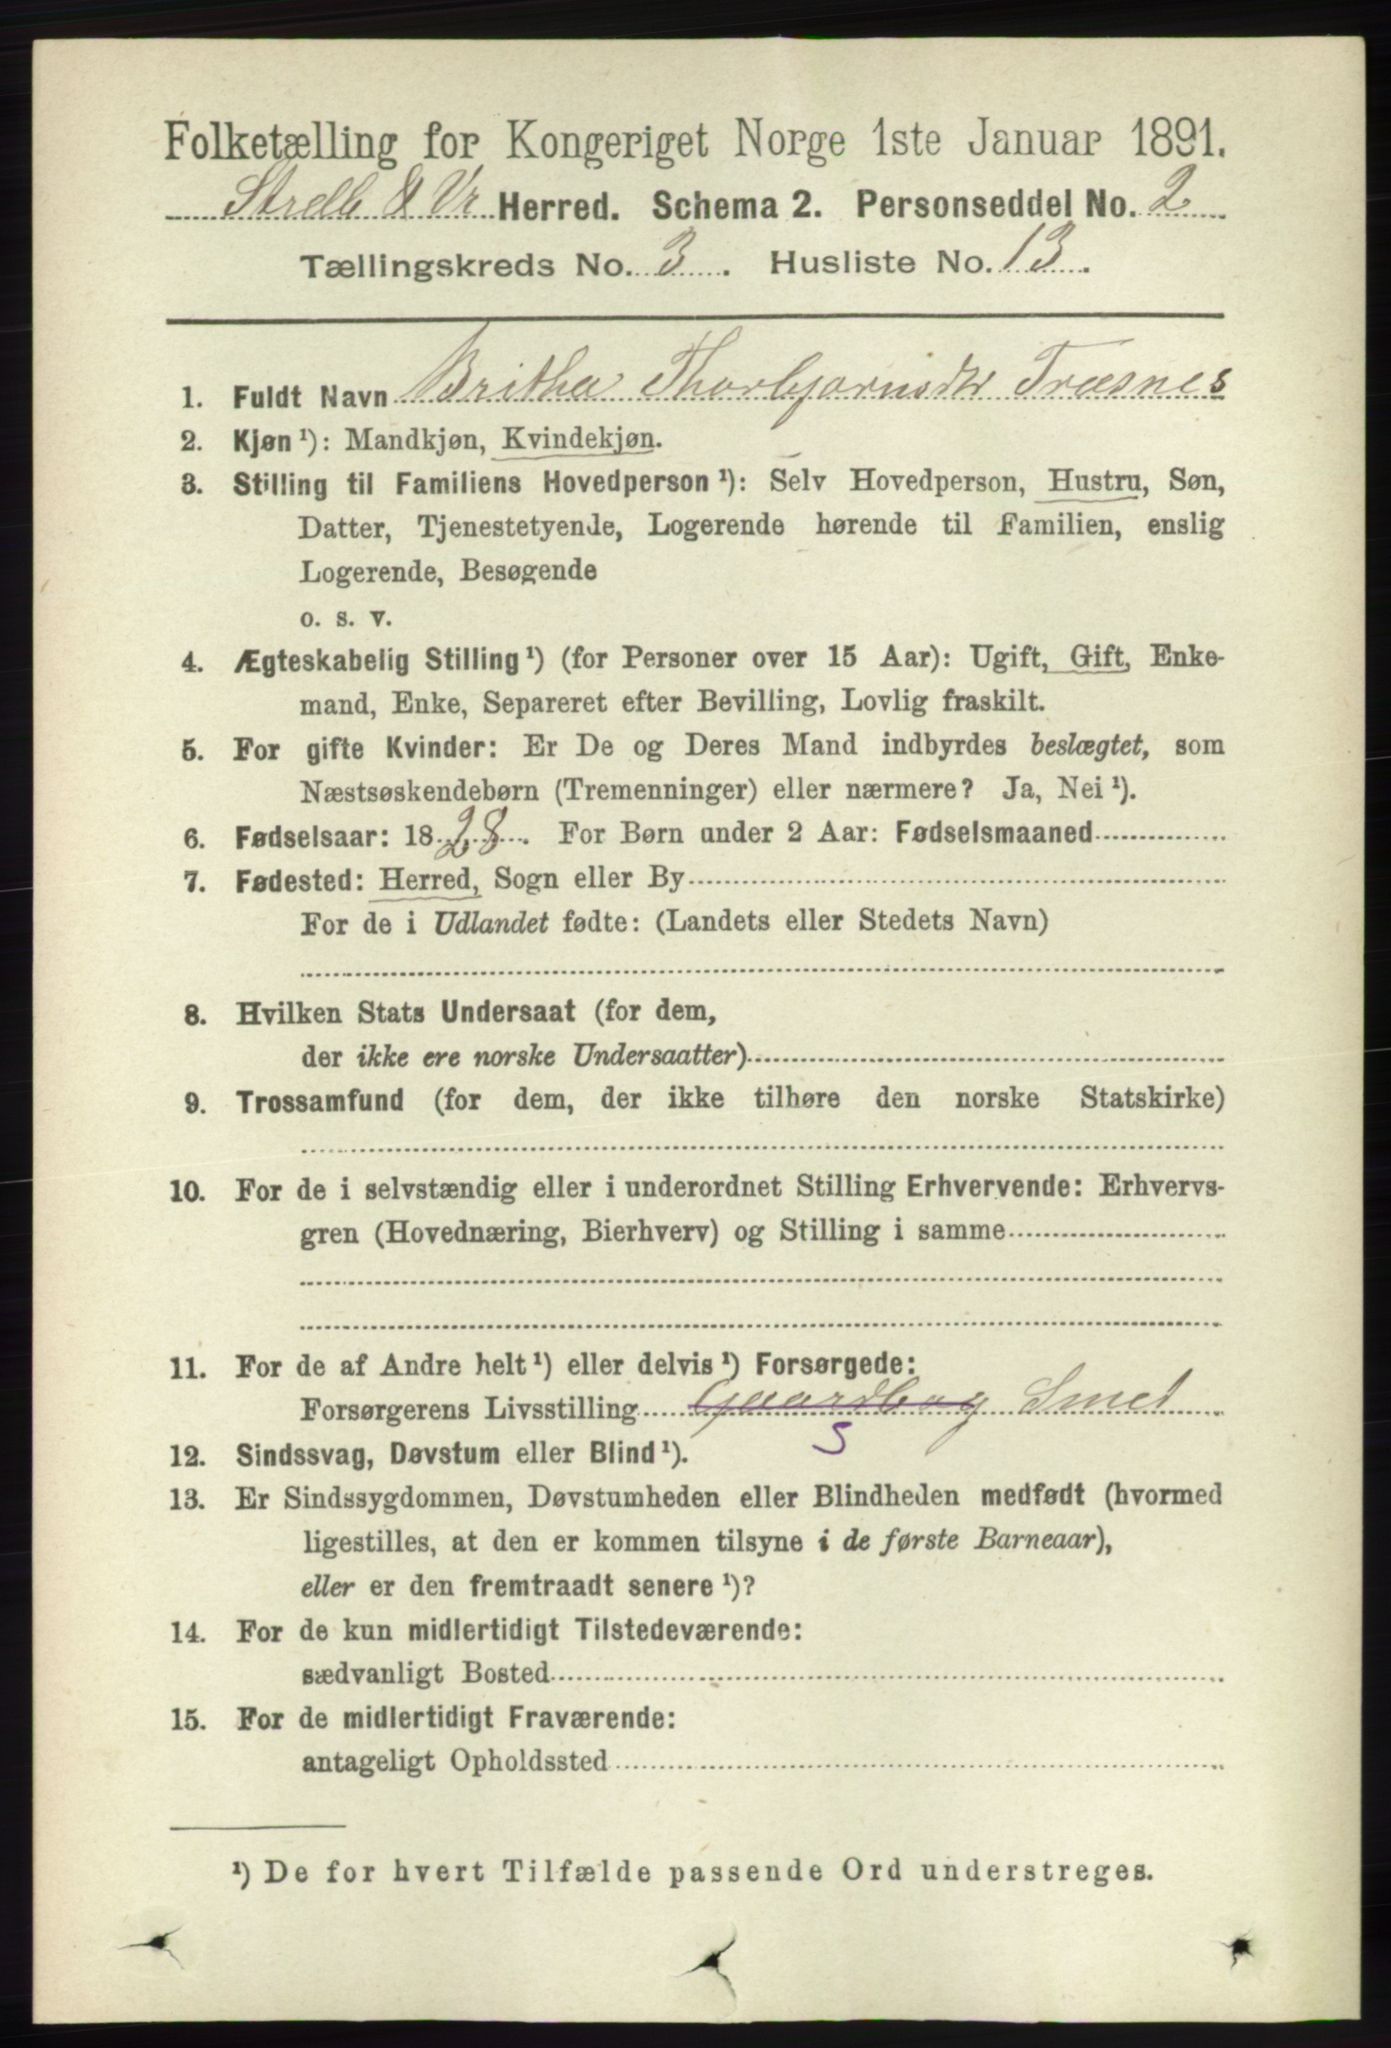 Folketælling for Kongeriget Norge 1ste Januar 1891.
Strelb & Vr Herred. Schema 2. Personseddel No. 2
Tællingskreds No. 3. Husliste No. 13.
1. Fuldt Navn Britha Thorbjørnsdtr Træsnes
2. Kjøn ¹): Mandkjøn, Kvindekjøn.
3. Stilling til Familiens Hovedperson ¹): Selv Hovedperson, Hustru, Søn,
Datter, Tjenestetyende, Logerende hørende til Familien, enslig
Logerende, Besøgende
o. s. v.
4. Ægteskabelig Stilling ¹) (for Personer over 15 Aar): Ugift, Gift, Enke-
mand, Enke, Separeret efter Bevilling, Lovlig fraskilt.
5. For gifte Kvinder: Er De og Deres Mand indbyrdes beslægtet, som
Næstsøskendebørn (Tremenninger) eller nærmere? Ja, Nei ¹).
6. Fødselsaar: 1828. For Børn under 2 Aar: Fødselsmaaned
7. Fødested: Herred, Sogn eller By
For de i Udlandet fødte: (Landets eller Stedets Navn)
8. Hvilken Stats Undersaat (for dem,
der ikke ere norske Undersaatter)
9. Trossamfund (for dem, der ikke tilhøre den norske Statskirke)
10. For de i selvstændig eller i underordnet Stilling Erhvervende: Erhvervs-
gren (Hovednæring, Bierhverv) og Stilling i samme
11. For de af Andre helt ¹) eller delvis ¹) Forsørgede:
Forsørgerens Livsstilling Gaardbrug Smed
S
12. Sindssvag, Døvstum eller Blind ¹).
13. Er Sindssygdommen, Døvstumheden eller Blindheden medfødt (hvormed
ligestilles, at den er kommen tilsyne i de første Barneaar),
eller er den fremtraadt senere ¹)?
14. For de kun midlertidigt Tilstedeværende:
sædvanligt Bosted
15. For de midlertidigt Fraværende:
antageligt Opholdssted
¹) De for hvert Tilfælde passende Ord understreges.